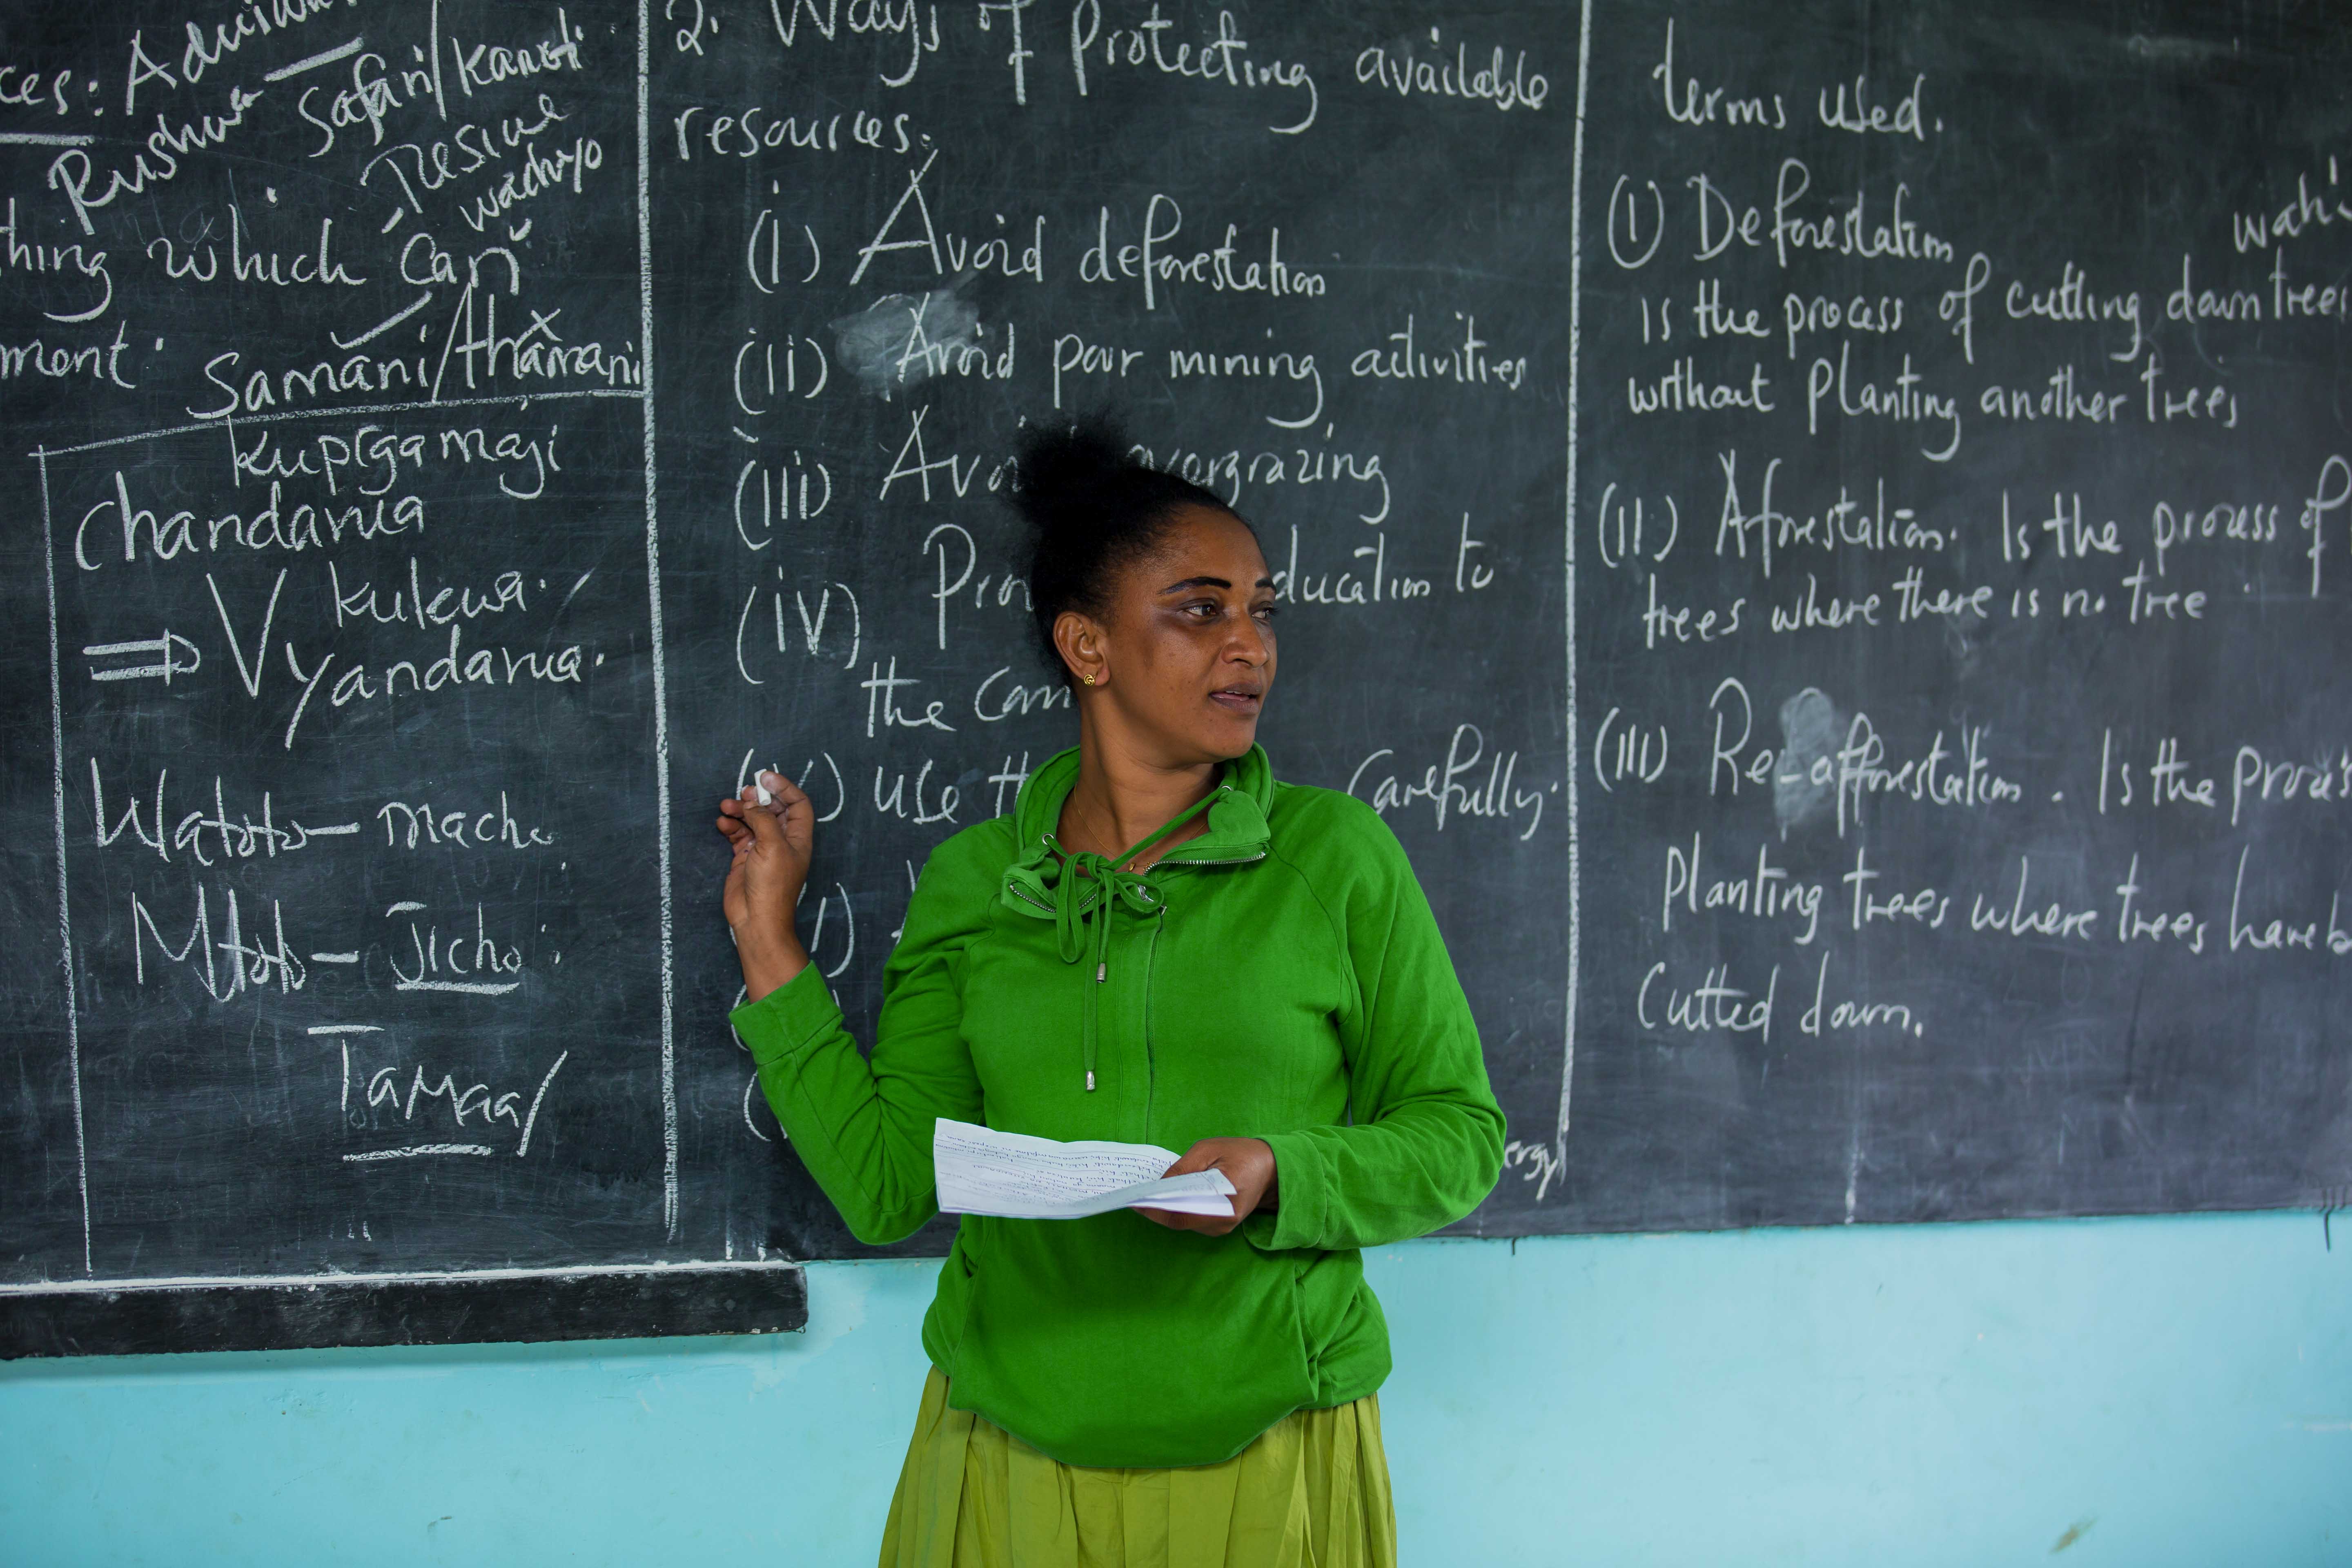 ces:
Rushwa
Safari/Kanuti
wadhyo
thing which can
ment.
Samani/thamani
Kupiga maji
Chandarua
Kulewa.
⇒ Vyandarua.
Watoto - macho
Mtoto - Jicho
Tamaa/
2. Ways of protecting available
resources.
(i) Avoid deforestation
(ii) Avoid poor mining activities
(iii) Avoid overgrazing
(iv) education to
the
(v) Use carefully.
ergy
terms used.
(I) Deforestation
is the process of cutting down trees
without planting another trees
(II) Aforestation. Is the process of
trees where there is no tree
(III) Re-afforestation. Is the
Planting trees where trees have b
Cutted down.